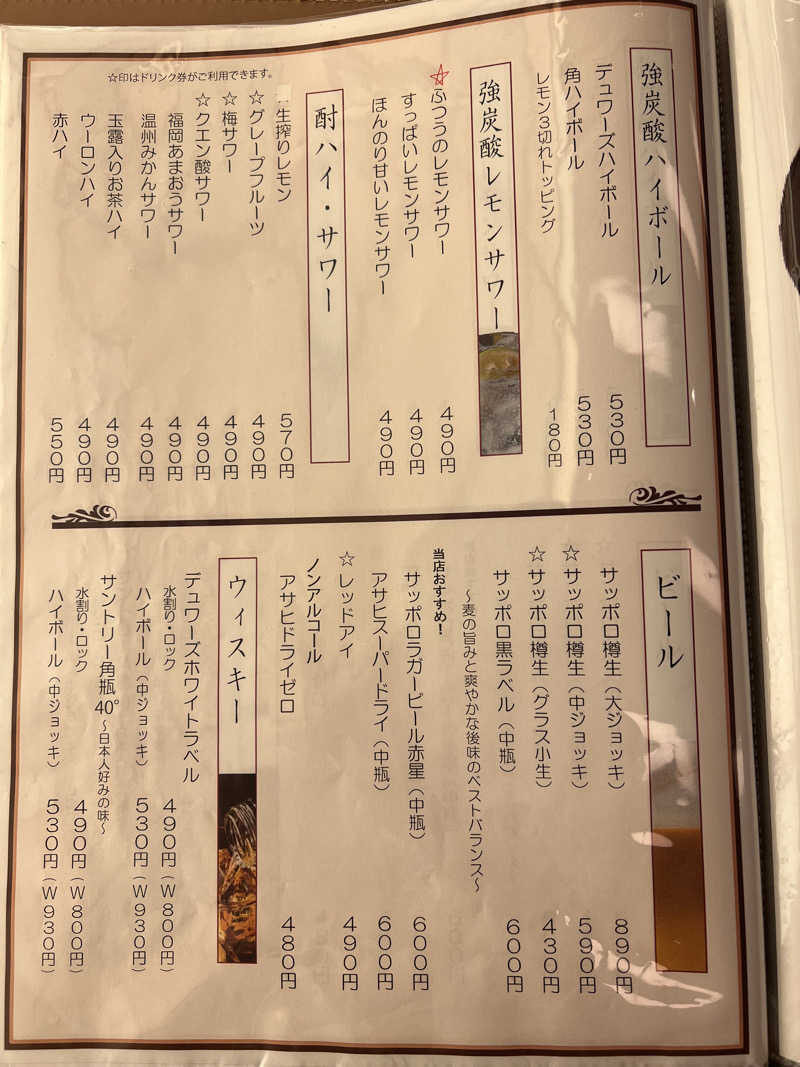 強炭酸ハイボール
デュワーズハイボール 530円
角ハイボール 530円
レモン3切れトッピング 180円
強炭酸レモンサワー
☆ふつうのレモンサワー 490円
すっぱいレモンサワー 490円
ほんのり甘いレモンサワー 490円
酎ハイ・サワー
生搾りレモン 570円
☆グレープフルーツ 490円
☆梅サワー 490円
☆クエン酸サワー 490円
福岡あまおうサワー 490円
温州みかんサワー 490円
玉露入りお茶ハイ 490円
ウーロンハイ 490円
赤ハイ 550円
☆印はドリンク券がご利用できます。
ビール
サッポロ樽生(大ジョッキ) 890円
☆サッポロ樽生(中ジョッキ) 590円
☆サッポロ樽生(グラス小生) 430円
サッポロ黒ラベル(中瓶) 600円
～麦の旨みと爽やかな後味のベストバランス～
当店おすすめ！
サッポロラガービール赤星(中瓶) 600円
アサヒスーパードライ(中瓶) 600円
☆レッドアイ 490円
ノンアルコール
アサヒドライゼロ 480円
ウィスキー
デュワーズホワイトラベル
水割り・ロック 490円(W800円)
ハイボール(中ジョッキ) 530円(W930円)
サントリー角瓶 40° ～日本人好みの味～
水割り・ロック 490円(W800円)
ハイボール(中ジョッキ) 530円(W930円)